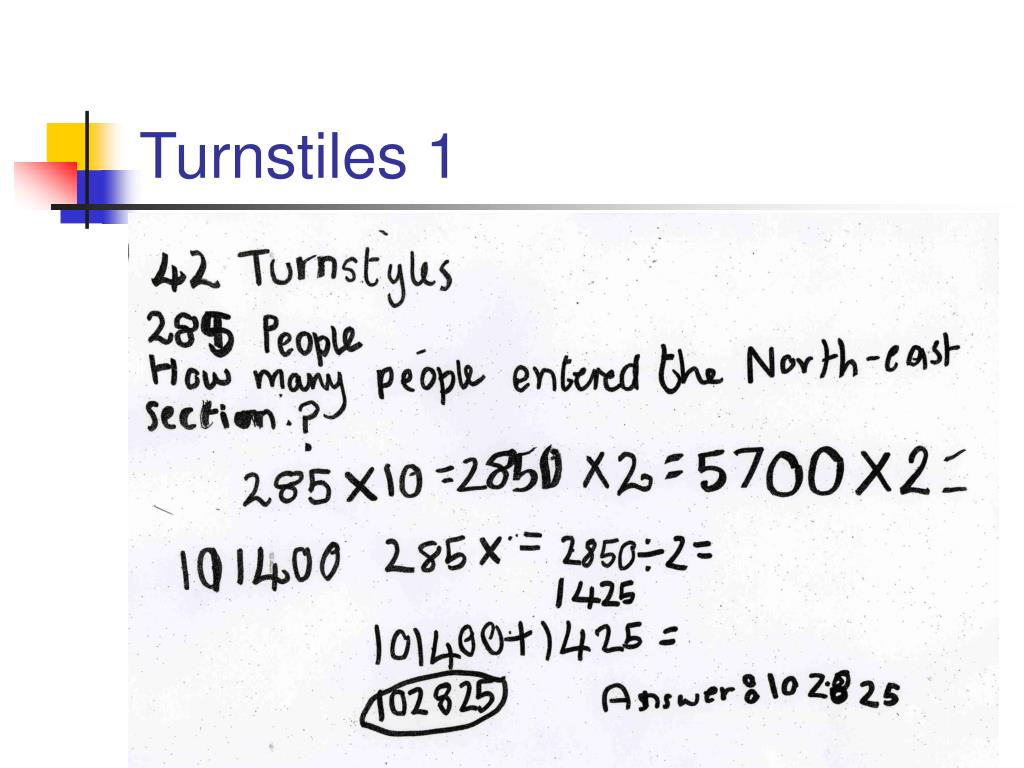 Turnstiles 1
42 Turnstyles
285 People
How many people entered the North-east
section.?
285 X 10 = 2850 X 2 = 5700 X 2 =
101400 285 X = 2850 ÷ 2 =
1425
101400 + 1425 =
102825 Answer: 102825